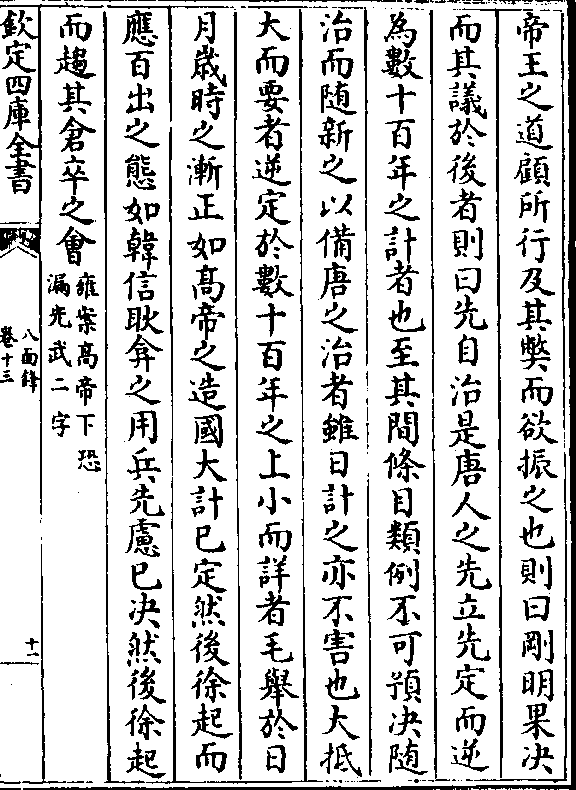 帝王之道顧所行及其弊而欲振之也則曰剛明果决
而其議於後者則曰先自治是唐人之先立先定而逆
為數十百年之計者也至其間條目類例不可預决随
治而随新之以備唐之治者雖日計之亦不害也大抵
大而要者逆定於數十百年之上小而詳者毛舉於日
月歳時之漸正如髙帝之造國大計已定然後徐起而
應百出之態如韓信耿弇之用兵先慮已决然後徐起
而趨其倉卒之會
雍案髙帝下恐
漏光武二字
欽定四庫全書
八面鋒
卷十三
十一